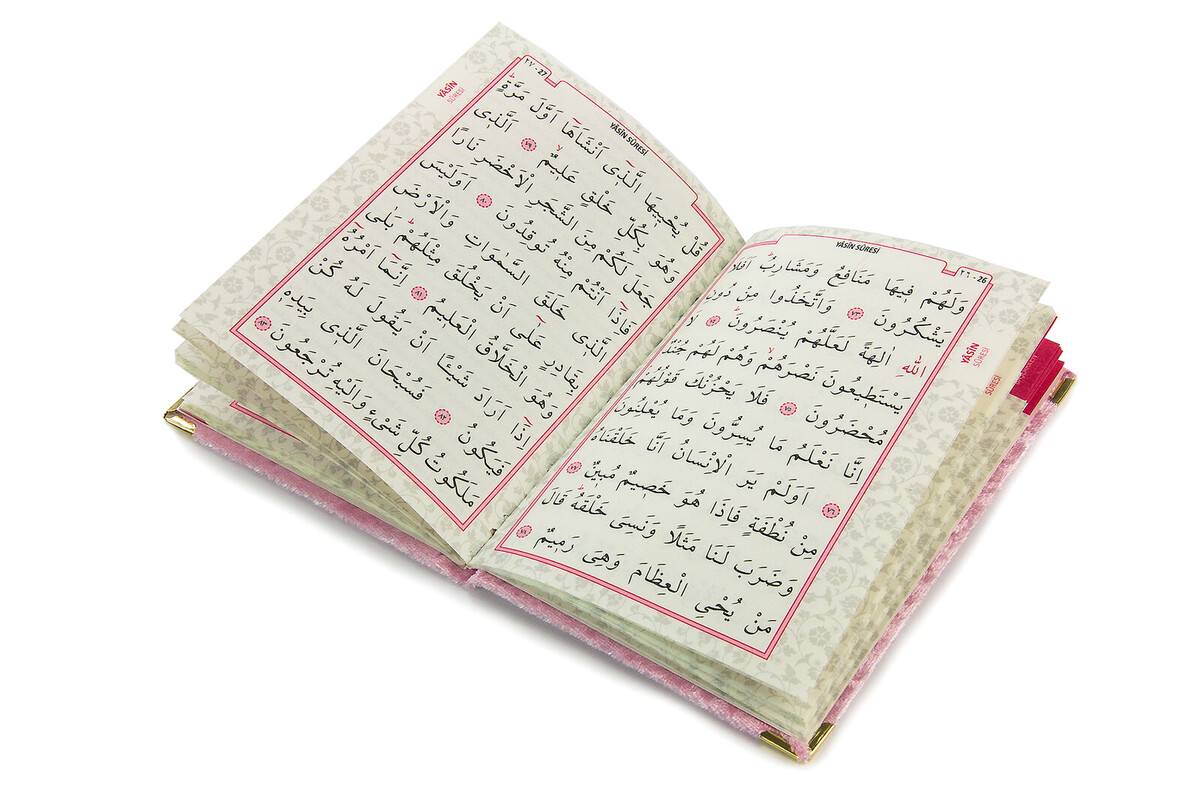 YÂSÎN SÛRESİ
٢٦ - 26
وَلَهُمْ فٖيهَا مَنَافِعُ وَمَشَارِبُؕ اَفَلَا
يَشْكُرُونَ ﴿٧٣﴾ وَاتَّخَذُوا مِنْ دُونِ
اللّٰهِ اٰلِهَةً لَعَلَّهُمْ يُنْصَرُونَؕ ﴿٧٤﴾ لَا
يَسْتَطٖيعُونَ نَصْرَهُمْۙ وَهُمْ لَهُمْ جُنْدٌ
مُحْضَرُونَ ﴿٧٥﴾ فَلَا يَحْزُنْكَ قَوْلُهُمْۘ
اِنَّا نَعْلَمُ مَا يُسِرُّونَ وَمَا يُعْلِنُونَ
﴿٧٦﴾ اَوَلَمْ يَرَ الْاِنْسَانُ اَنَّا خَلَقْنَاهُ
مِنْ نُطْفَةٍ فَاِذَا هُوَ خَصٖيمٌ مُبٖينٌ ﴿٧٧﴾
وَضَرَبَ لَنَا مَثَلًا وَنَسِیَ خَلْقَهُؕ قَالَ
مَنْ يُحْيِ الْعِظَامَ وَهِیَ رَمٖيمٌ ﴿٧٨﴾
YÂSÎN
SÛRESİ
SÛRESİ
٢٧ - 27
YÂSÎN SÛRESİ
YÂSÎN
SÛRESİ
قُلْ يُحْيٖيهَا الَّـذٖٓی اَنْشَاَهَٓا اَوَّلَ مَرَّةٍؕ
وَهُوَ بِكُلِّ خَلْقٍ عَلٖيمٌۙ ﴿٧٩﴾ اَلَّذٖی
جَعَلَ لَكُمْ مِنَ الشَّجَرِ الْاَخْضَرِ نَارًا
فَاِذَٓا اَنْتُمْ مِنْهُ تُوقِدُونَ ﴿٨٠﴾ اَوَلَيْسَ
الَّذٖی خَلَقَ السَّمٰوَاتِ وَالْاَرْضَ
بِقَادِرٍ عَلٰٓى اَنْ يَخْلُقَ مِثْلَهُمْؕ بَلٰى
وَهُوَ الْخَلَّاقُ الْعَلٖيمُ ﴿٨١﴾ اِنَّمَٓا اَمْرُهُٓ
اِذَٓا اَرَادَ شَيْئًا اَنْ يَقُولَ لَهُ كُنْ
فَيَكُونُ ﴿٨٢﴾ فَسُبْحَانَ الَّذٖی بِيَدِهٖ
مَلَكُوتُ كُلِّ شَیْءٍ وَاِلَيْهِ تُرْجَعُونَ ﴿٨٣﴾